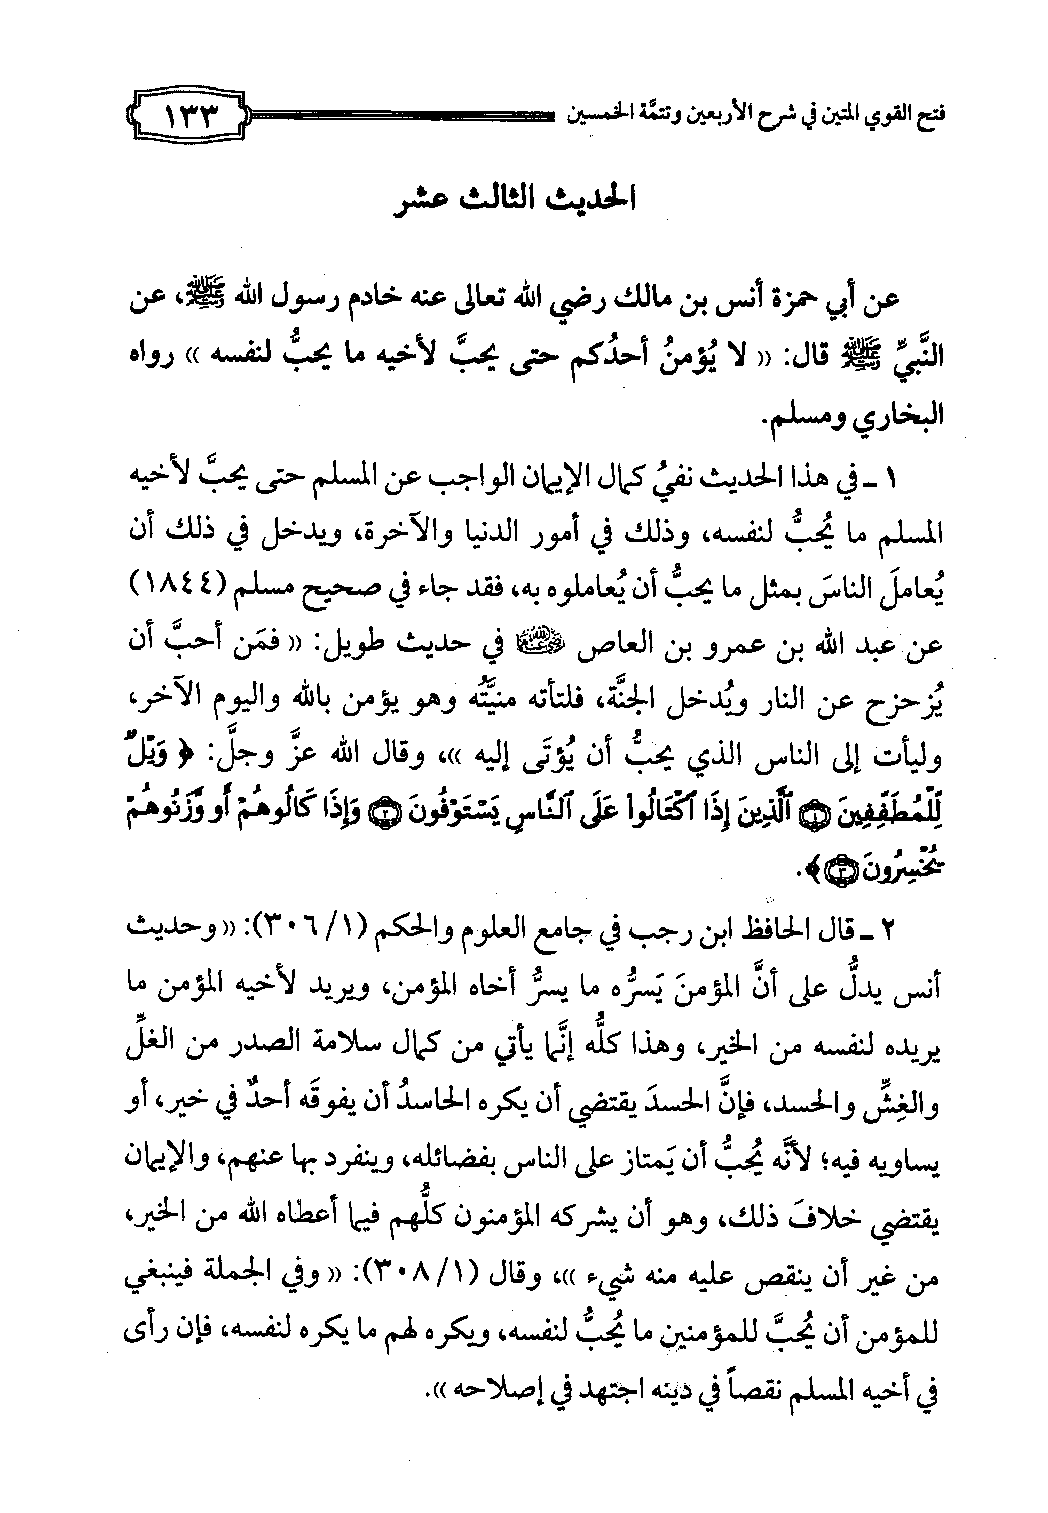 فتح القوي المتين في شرح الأربعين وتتمَّة الخمسين ١٣٣
الحديث الثالث عشر
عن أبي حمزة أنس بن مالك رضي الله تعالى عنه خادم رسول الله ﷺ، عن
النَّبيِّ ﷺ قال: (( لا يُؤمنُ أحدُكم حتى يحبَّ لأخيه ما يحبُّ لنفسه )) رواه
البخاري ومسلم.
١ ـ في هذا الحديث نفيُ كمال الإيمان الواجب عن المسلم حتى يحبَّ لأخيه
المسلم ما يُحبُّ لنفسه، وذلك في أمور الدنيا والآخرة، ويدخل في ذلك أن
يُعاملَ الناسَ بمثل ما يحبُّ أن يُعاملوه به، فقد جاء في صحيح مسلم (١٨٤٤)
عن عبد الله بن عمرو بن العاص في حديث طويل: (( فمَن أحبَّ أن
يُزحزح عن النار ويُدخل الجنَّة، فلتأته منيَّتُه وهو يؤمن بالله واليوم الآخر،
وليأت إلى الناس الذي يحبُّ أن يُؤتَى إليه ))، وقال الله عزَّ وجلَّ: ﴿ وَيْلٌ
لِّلْمُطَفِّفِينَ ۝١ ٱلَّذِينَ إِذَا ٱكْتَالُوا۟ عَلَى ٱلنَّاسِ يَسْتَوْفُونَ ۝٢ وَإِذَا كَالُوهُمْ أَو وَّزَنُوهُمْ
يُخْسِرُونَ ۝٣﴾.
٢ ـ قال الحافظ ابن رجب في جامع العلوم والحكم (٣٠٦/١): (( وحديث
أنس يدلُّ على أنَّ المؤمنَ يَسرُّه ما يسرُّ أخاه المؤمن، ويريد لأخيه المؤمن ما
يريده لنفسه من الخير، وهذا كلُّه إنَّما يأتي من كمال سلامة الصدر من الغلِّ
والغِشِّ والحسد، فإنَّ الحسدَ يقتضي أن يكره الحاسدُ أن يفوقَه أحدٌ في خير، أو
يساويه فيه؛ لأنَّه يُحبُّ أن يَمتاز على الناس بفضائله، وينفرد بها عنهم، والإيمان
يقتضي خلافَ ذلك، وهو أن يشركه المؤمنون كلُّهم فيما أعطاه الله من الخير،
من غير أن ينقص عليه منه شيء ))، وقال (٣٠٨/١): (( وفي الجملة فينبغي
للمؤمن أن يُحبَّ للمؤمنين ما يُحبُّ لنفسه، ويكره لهم ما يكره لنفسه، فإن رأى
في أخيه المسلم نقصاً في دينه اجتهد في إصلاحه )).